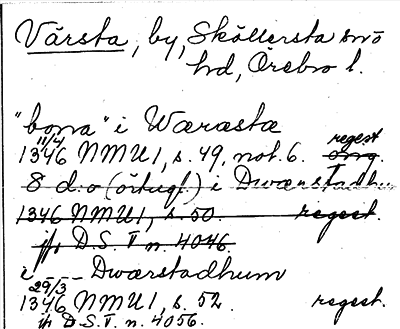 Vårsta, by, Sköllersta snö
hd, Örebro l.
"bona" i Wærastæ
11/4 regest
1346 NMU 1, s. 49, not. 6. orig.
8 d:o (örtugl.) i Dwærstadhum
1346 NMU 1, s. 50. regest.
jfr D.S. V n. 4046.
i --- Dwærstadhum
29/3
1346 NMU 1, s. 52. regest.
jfr D.S. V. n. 4056.